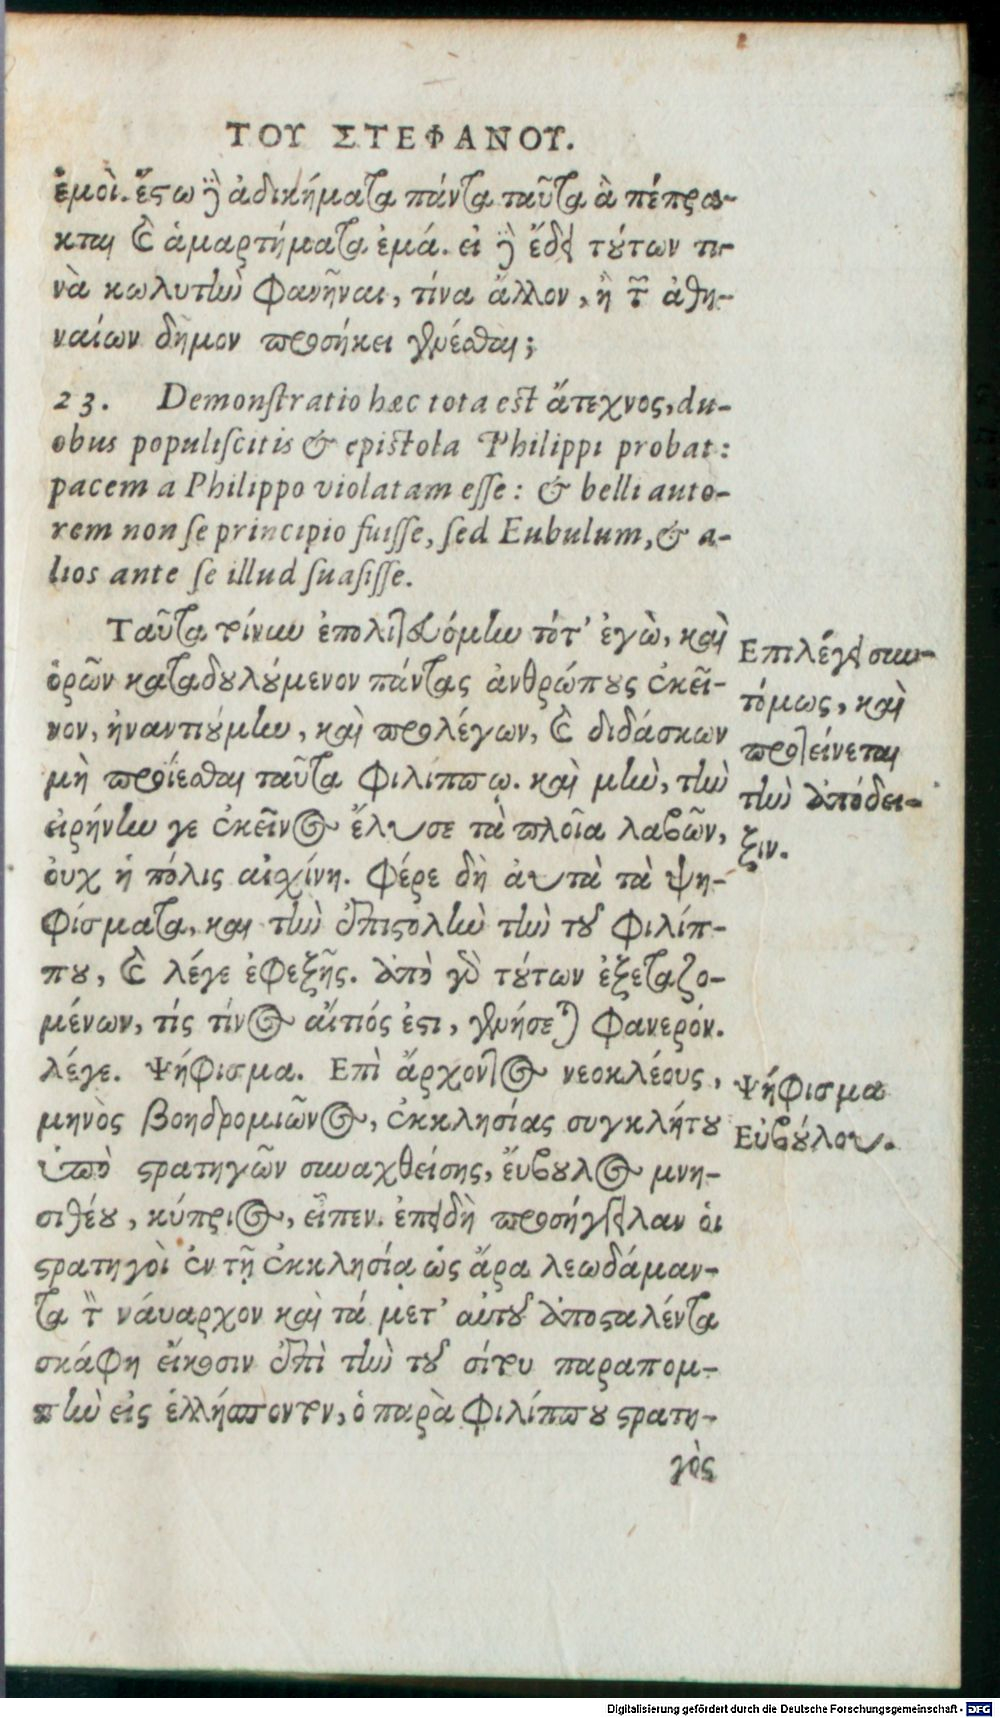 ΤΟΥ ΣΤΕΦΑΝΟΥ.
ἐμοὶ. ἔστω δὲ ἀδικήματα πάντα ταῦτα ἃ πέπρα-
κται καὶ ἁμαρτήματα ἐμά. εἰ δὲ ἔδει τούτων τι-
νὰ κωλυτὴν φανῆναι, τίνα ἄλλον, ἢ τὸν ἀθη-
ναίων δῆμον προσήκει γενέσθαι;
23. Demonſtratio hæc tota est ἄτεχνος, du-
obus populiſcitis & epistola Philippi probat:
pacem a Philippo violatam eſſe: & belli auto-
rem non ſe principio fuiſſe, ſed Eubulum, & a-
lios ante ſe illud ſuaſiſſe.
Ταῦτα τοίνυν ἐπολιτευόμην τότ' ἐγὼ, καὶ
ὁρῶν καταδουλούμενον πάντας ἀνθρώπους ἐκεῖ-
νον, ἠναντιούμην, καὶ προλέγων, καὶ διδάσκων
μὴ προΐεσθαι ταῦτα Φιλίππῳ. καὶ μὴν, τὴν
εἰρήνην γε ἐκεῖνος ἔλυσε τὰ πλοῖα λαβῶν,
ὀυχ ἡ πόλις αἰχίνη. Φέρε δὴ ἀυτὰ τὰ ψη-
φίσματα, και τὴν ἐπιστολὴν τὴν τοῦ Φιλίπ-
που, καὶ λέγε ἐφεξῆς. ἀπὸ γὰρ τούτων ἐξεταζο-
μένων, τίς τίνος αἴτιός ἐστι, γενήσεται φανερόν.
λέγε. Ψήφισμα. Επὶ ἄρχοντος νεοκλέους,
μηνὸς βοηδρομιῶνος, ἐκκλησίας συγκλήτου
ὑπὸ στρατηγῶν συναχθείσης, ἔυβουλος μνη-
σιθέου, κύπριος, εἶπεν. ἐπειδὴ προσήγγειλαν ὁι
στρατηγοὶ ἐν τῇ ἐκκλησίᾳ ὡς ἄρα λεωδάμαν-
τα τὸν νάυαρχον καὶ τά μετ' αὐτοῦ ἀποσταλέντα
σκάφη εἴκοσιν ἐπὶ τὴν τοῦ σίτου παραπομ-
πὴν εἰς ἑλλήσποντον, ὁ παρὰ Φιλίππου στρατη-
γὸς
Επιλέγει συν-
τόμως, καὶ
προτείνεται
τὴν ἀπόδει-
ξιν.
Ψήφισμα
Εὐβούλου.
Digitalisierung gefördert durch die Deutsche Forschungsgemeinschaft - DFG